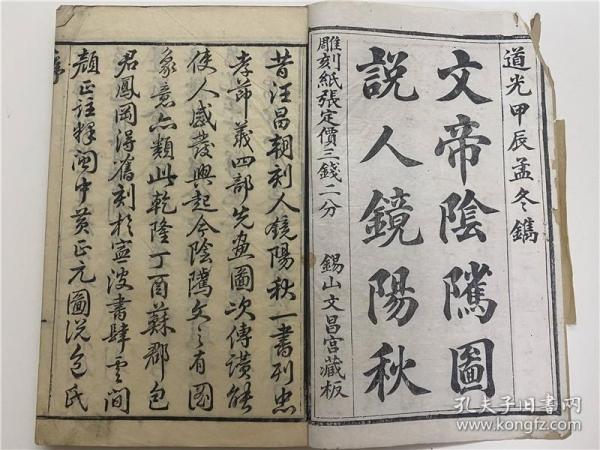 道光甲辰孟冬鐫
文帝陰隲圖
說人鏡陽秋
雕刻紙張定價三錢二分
錫山文昌宮藏板
昔汪昌朝刻人鏡陽秋一書列忠
孝節義四部先畫圖次傳讚能
使人感發興起今陰隲文之有圖
象意亦類此乾隆丁酉蘇郡包
君鳳岡得舊刻於寧波書肆雲間
顏正註釋閩中黃正元圖說包氏
序
孔夫子旧书网
www.kongfz.com